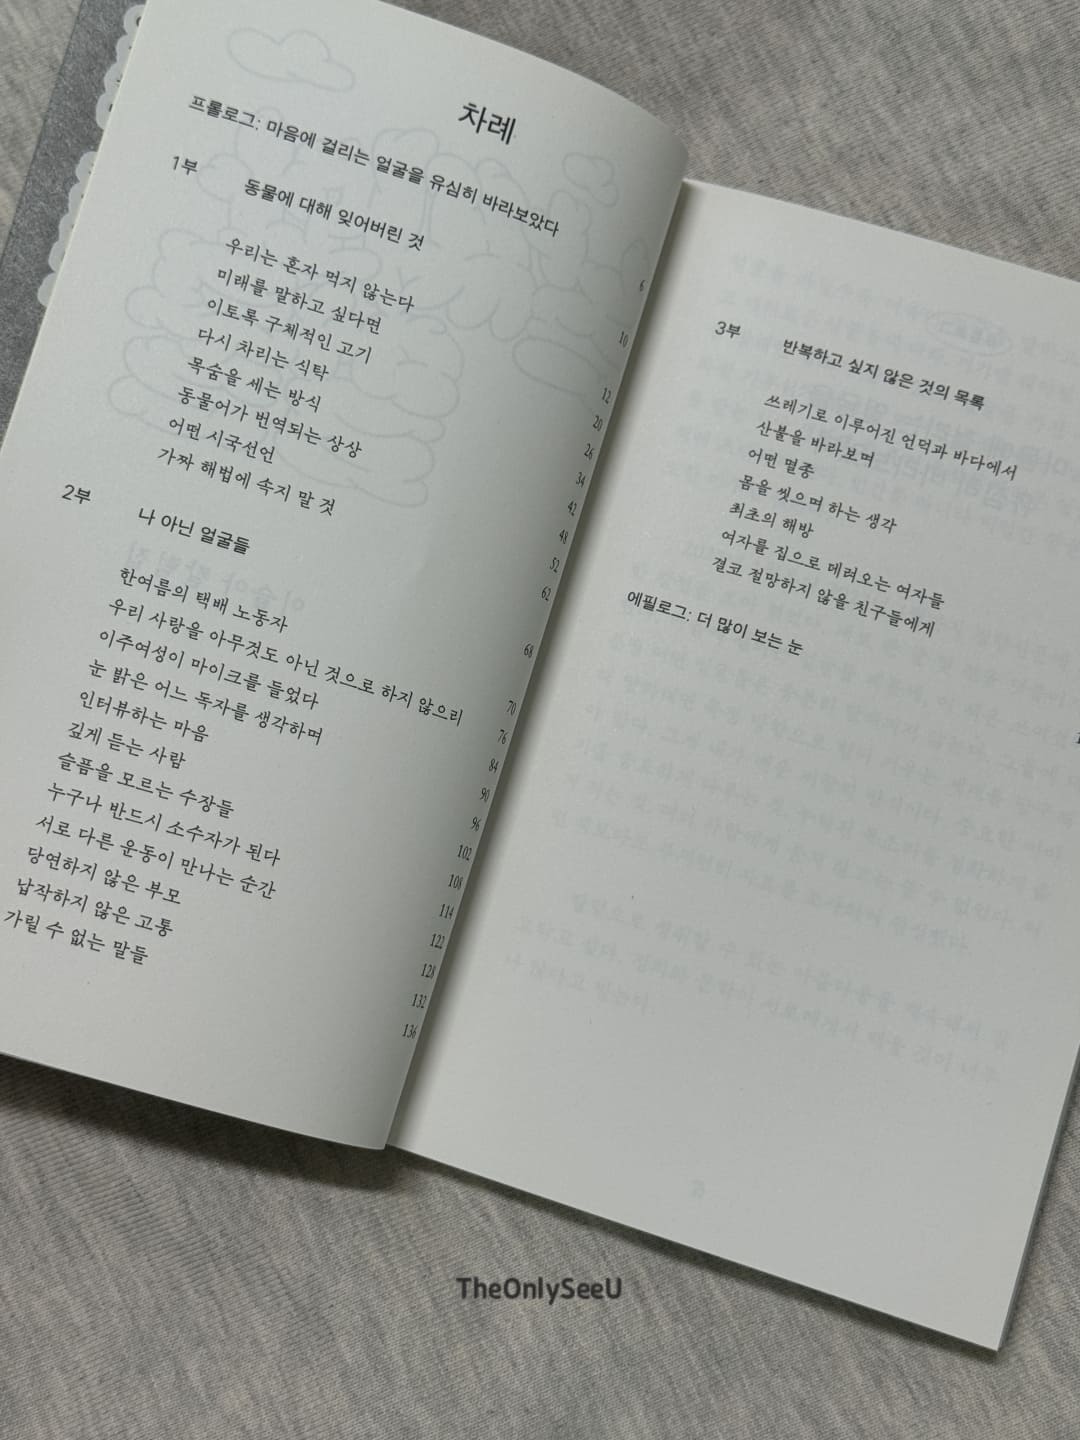 차례
프롤로그: 마음에 걸리는 얼굴을 유심히 바라보았다 6
1부 동물에 대해 잊어버린 것 10
우리는 혼자 먹지 않는다 12
미래를 말하고 싶다면 20
이토록 구체적인 고기 26
다시 차리는 식탁 34
목숨을 세는 방식 42
동물어가 번역되는 상상 48
어떤 시국선언 52
가짜 해법에 속지 말 것 62
2부 나 아닌 얼굴들 68
한여름의 택배 노동자 70
우리 사랑을 아무것도 아닌 것으로 하지 않으리 76
이주여성이 마이크를 들었다 84
눈 밝은 어느 독자를 생각하며 90
인터뷰하는 마음 96
깊게 듣는 사람 102
슬픔을 모르는 수장들 108
누구나 반드시 소수자가 된다 114
서로 다른 운동이 만나는 순간 122
당연하지 않은 부모 128
납작하지 않은 고통 132
가릴 수 없는 말들 136
3부 반복하고 싶지 않은 것의 목록
쓰레기로 이루어진 언덕과 바다에서
산불을 바라보며
어떤 멸종
몸을 씻으며 하는 생각
최초의 해방
여자를 집으로 데려오는 여자들
결코 절망하지 않을 친구들에게
에필로그: 더 많이 보는 눈
TheOnlySeeU